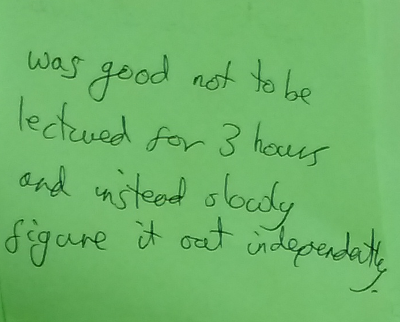 was good not to be
lectured for 3 hours
and instead slowly
figure it out independently.